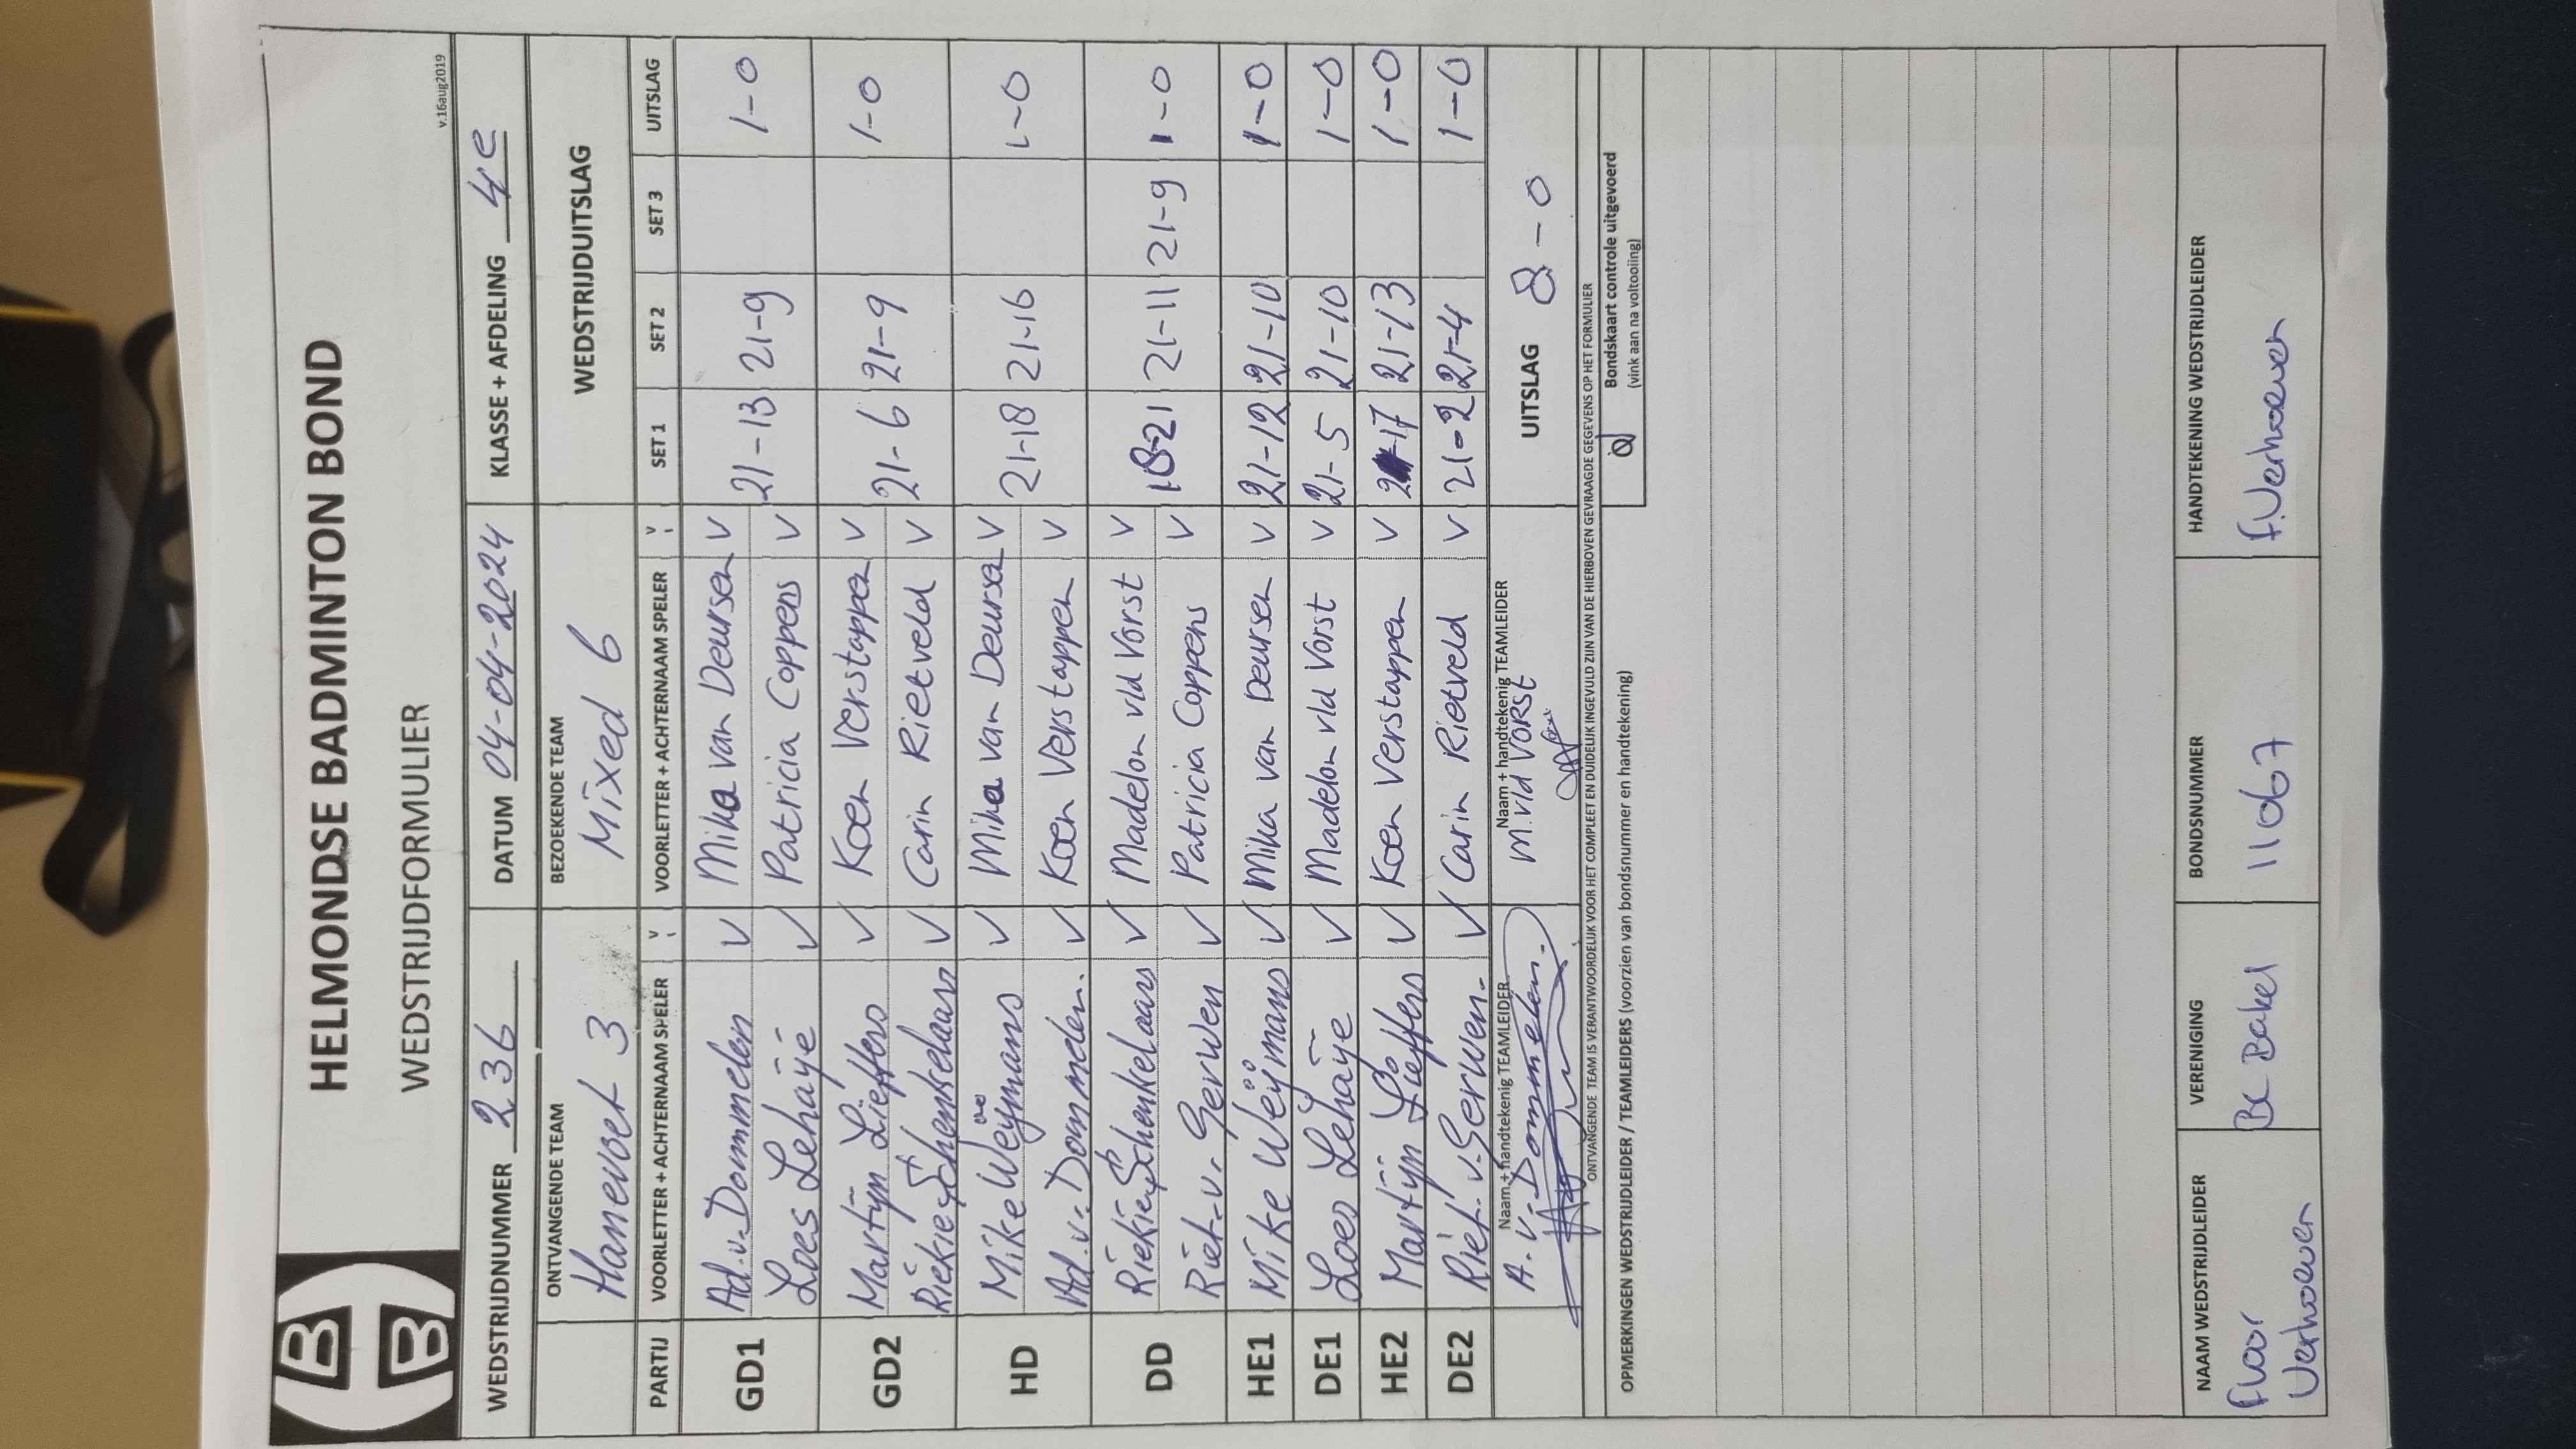 HELMONDSE BADMINTON BOND
WEDSTRIJDFORMULIER
v.16aug2019
WEDSTRIJDNUMMER 236 DATUM 04-04-2024 KLASSE + AFDELING 4e
ONTVANGENDE TEAM BEZOEKENDE TEAM WEDSTRIJDUITSLAG
Hanevoet 3 Mixed 6
PARTIJ VOORLETTER + ACHTERNAAM SPELER V VOORLETTER + ACHTERNAAM SPELER V SET 1 SET 2 SET 3 UITSLAG
GD1 Ad.v.Dommelen V Mika van Deursen V 21-13 21-9 1-0
Loes Lehaye V Patricia Coppens V
GD2 Martijn Lieffers V Koen Verstappen V 21-6 21-9 1-0
Riekie Schenkelaars V Carin Rietveld V
HD Mike Weijmans V Mika van Deursen V 21-18 21-16 1-0
Ad.v.Dommelen. V Koen Verstappen V
DD Riekie Schenkelaars V Madelon v/d Vorst V 18-21 21-11 21-9 1-0
Riet.v.Gerwen V Patricia Coppens V
HE1 Mike Weijmans V Mika van Deursen V 21-12 21-10 1-0
DE1 Loes Lehaye V Madelon v/d Vorst V 21-5 21-10 1-0
HE2 Martijn Lieffers V Koen Verstappen V 21-17 21-13 1-0
DE2 Riet.v.Gerwen. V Carin Rietveld V 21-2 21-4 1-0
Naam + handtekenig TEAMLEIDER Naam + handtekenig TEAMLEIDER UITSLAG 8-0
A.v.Dommelen. M.v/d VORST
ONTVANGENDE TEAM IS VERANTWOORDELIJK VOOR HET COMPLEET EN DUIDELIJK INGEVULD ZIJN VAN DE HIERBOVEN GEVRAAGDE GEGEVENS OP HET FORMULIER
OPMERKINGEN WEDSTRIJDLEIDER / TEAMLEIDERS (voorzien van bondsnummer en handtekening)
Bondskaart controle uitgevoerd
(vink aan na voltooiing)
NAAM WEDSTRIJDLEIDER VERENIGING BONDSNUMMER HANDTEKENING WEDSTRIJDLEIDER
Floor BC Bakel 11067 F.Verhoeven
Verhoeven